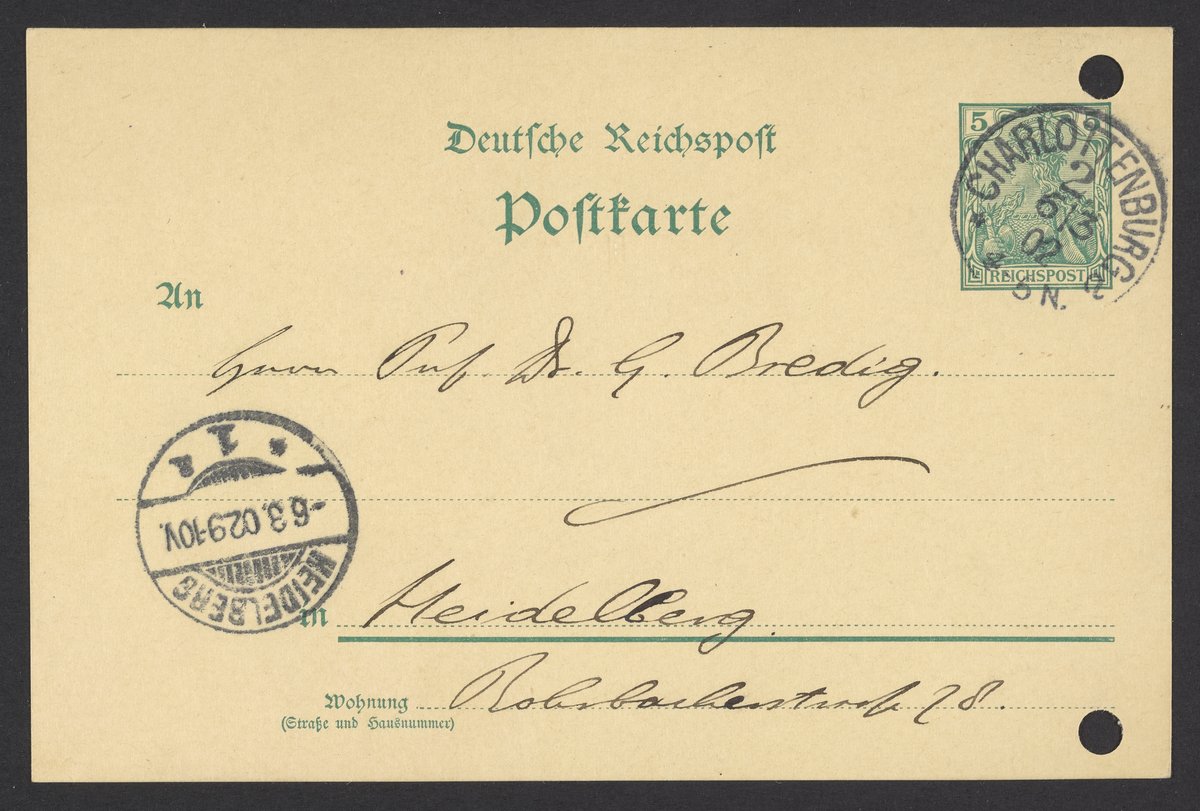 Deutsche Reichspost
Postkarte
5
REICHSPOST
* CHARLOTTENBURG 2 *
5 3
02
5 N.
An
Herrn Prof. Dr. G. Bredig.
* 1 a
-6.3.02.9-10V.
HEIDELBERG
in Heidelberg.
Wohnung Rohrbacherstraße 28.
(Straße und Hausnummer)